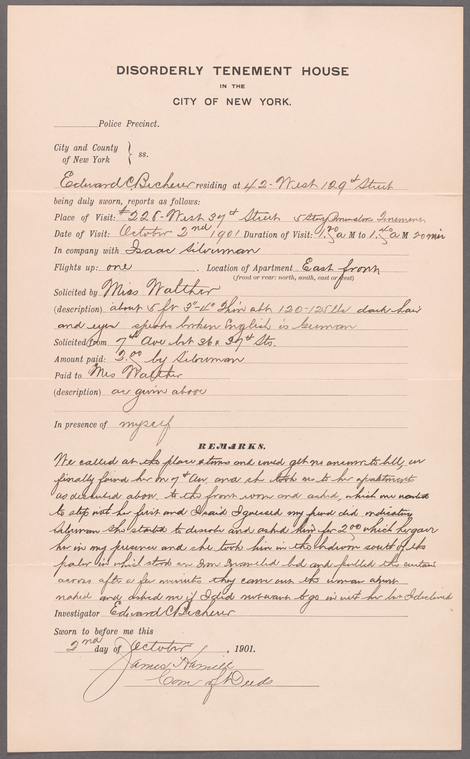 DISORDERLY TENEMENT HOUSE
IN THE
CITY OF NEW YORK.
Police Precinct.
City and County
of New York } ss.
Edward C Becherer residing at 42-West 129th Street
being duly sworn, reports as follows:
Place of Visit: #228-West 37th Street 5 Story Tenement
Date of Visit: October 2nd 1901 Duration of Visit: 1.20 a M to 1.40 a M 20 min
In company with Isaac Silverman
Flights up: one Location of Apartment East front
(front or rear: north, south, east or west)
Solicited by Miss Walther
(description) about 5 ft 3"-4" Thin abt 120-125 lbs dark hair
and eyes speaks broken English is German
Solicited from 7th Ave bet 36 & 37th Sts.
Amount paid: 2.00 by Silverman
Paid to Miss Walther
(description) as given above
In presence of myself
REMARKS.
We called at the place and could get no answer to bell, we
finally found her on 7th Ave, and she took us to her apartment
as described above, to the front room and asked, which one wanted
to step out her first and I said I guessed my friend did, indicating
Silverman she started to disrobe and asked him for 2.00 which he gave
her in my presence and she took him in the bedroom south of the
parlor in which stood an Iron Enameled bed and pulled the curtain
across after a few minutes they came out the woman
naked and asked me if I did not want to go in with her but I declined
Investigator Edward C Becherer
Sworn to before me this
2nd day of October, 1901.
James Hamill
Com of Deeds